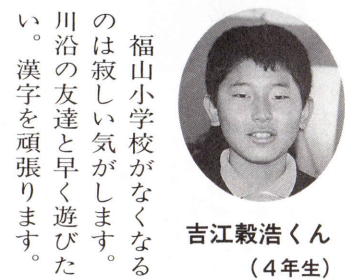 福山小学校がなくなる
のは寂しい気がします。
川沿の友達と早く遊びた
い。漢字を頑張ります。
吉江穀浩くん
（４年生）